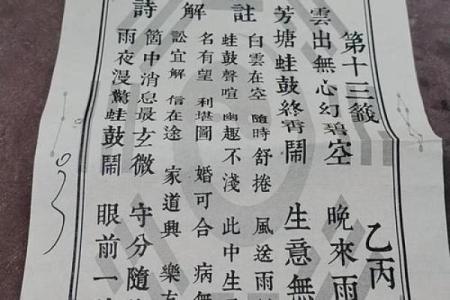 第十三籤 乙丙
雲出無心幻碧空 晚來雨
芳塘蛙鼓終宵鬧 生意無
註
白雲在空 隨時舒捲 風送雨
蛙鼓聲喧 幽趣不淺 此中生
解
名有望 利堪圖 婚可合 病無
訟宜解 信在途 家道興 樂
詩
箇中消息最玄微 守分隨
雨夜漫驚蛙鼓鬧 眼前一